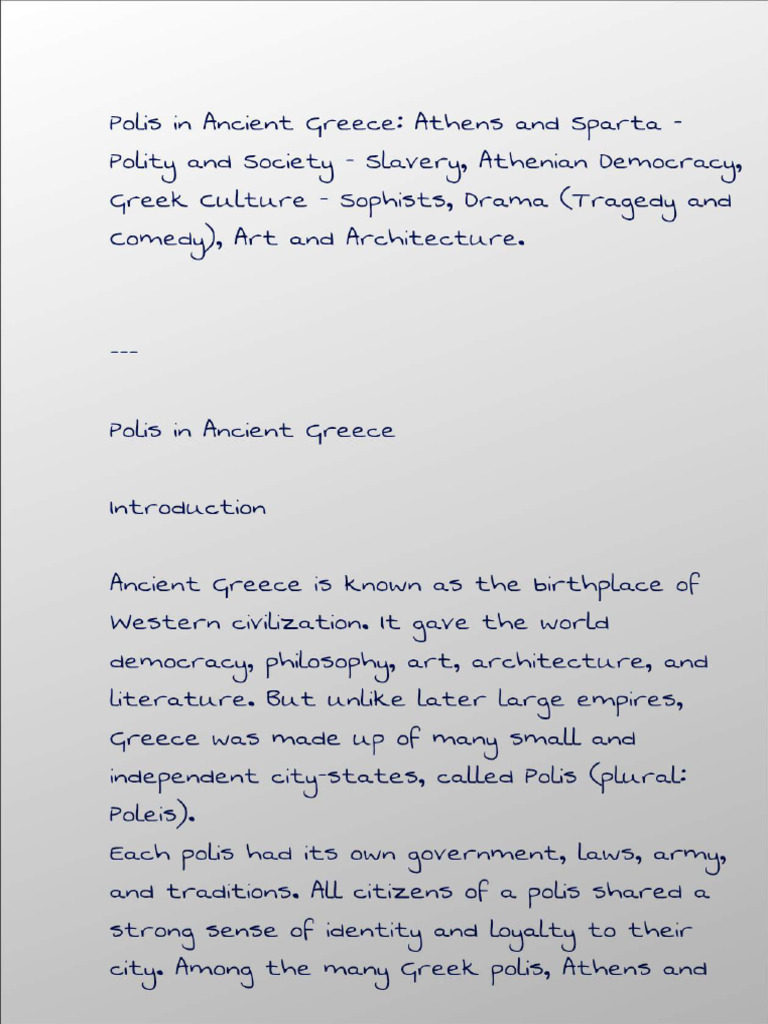 Polis in Ancient Greece: Athens and Sparta -
Polity and Society - Slavery, Athenian Democracy,
Greek Culture - Sophists, Drama (Tragedy and
Comedy), Art and Architecture.
---
Polis in Ancient Greece
Introduction
Ancient Greece is known as the birthplace of
Western civilization. It gave the world
democracy, philosophy, art, architecture, and
literature. But unlike later large empires,
Greece was made up of many small and
independent city-states, called Polis (plural:
Poleis).
Each polis had its own government, laws, army,
and traditions. All citizens of a polis shared a
strong sense of identity and loyalty to their
city. Among the many Greek polis, Athens and